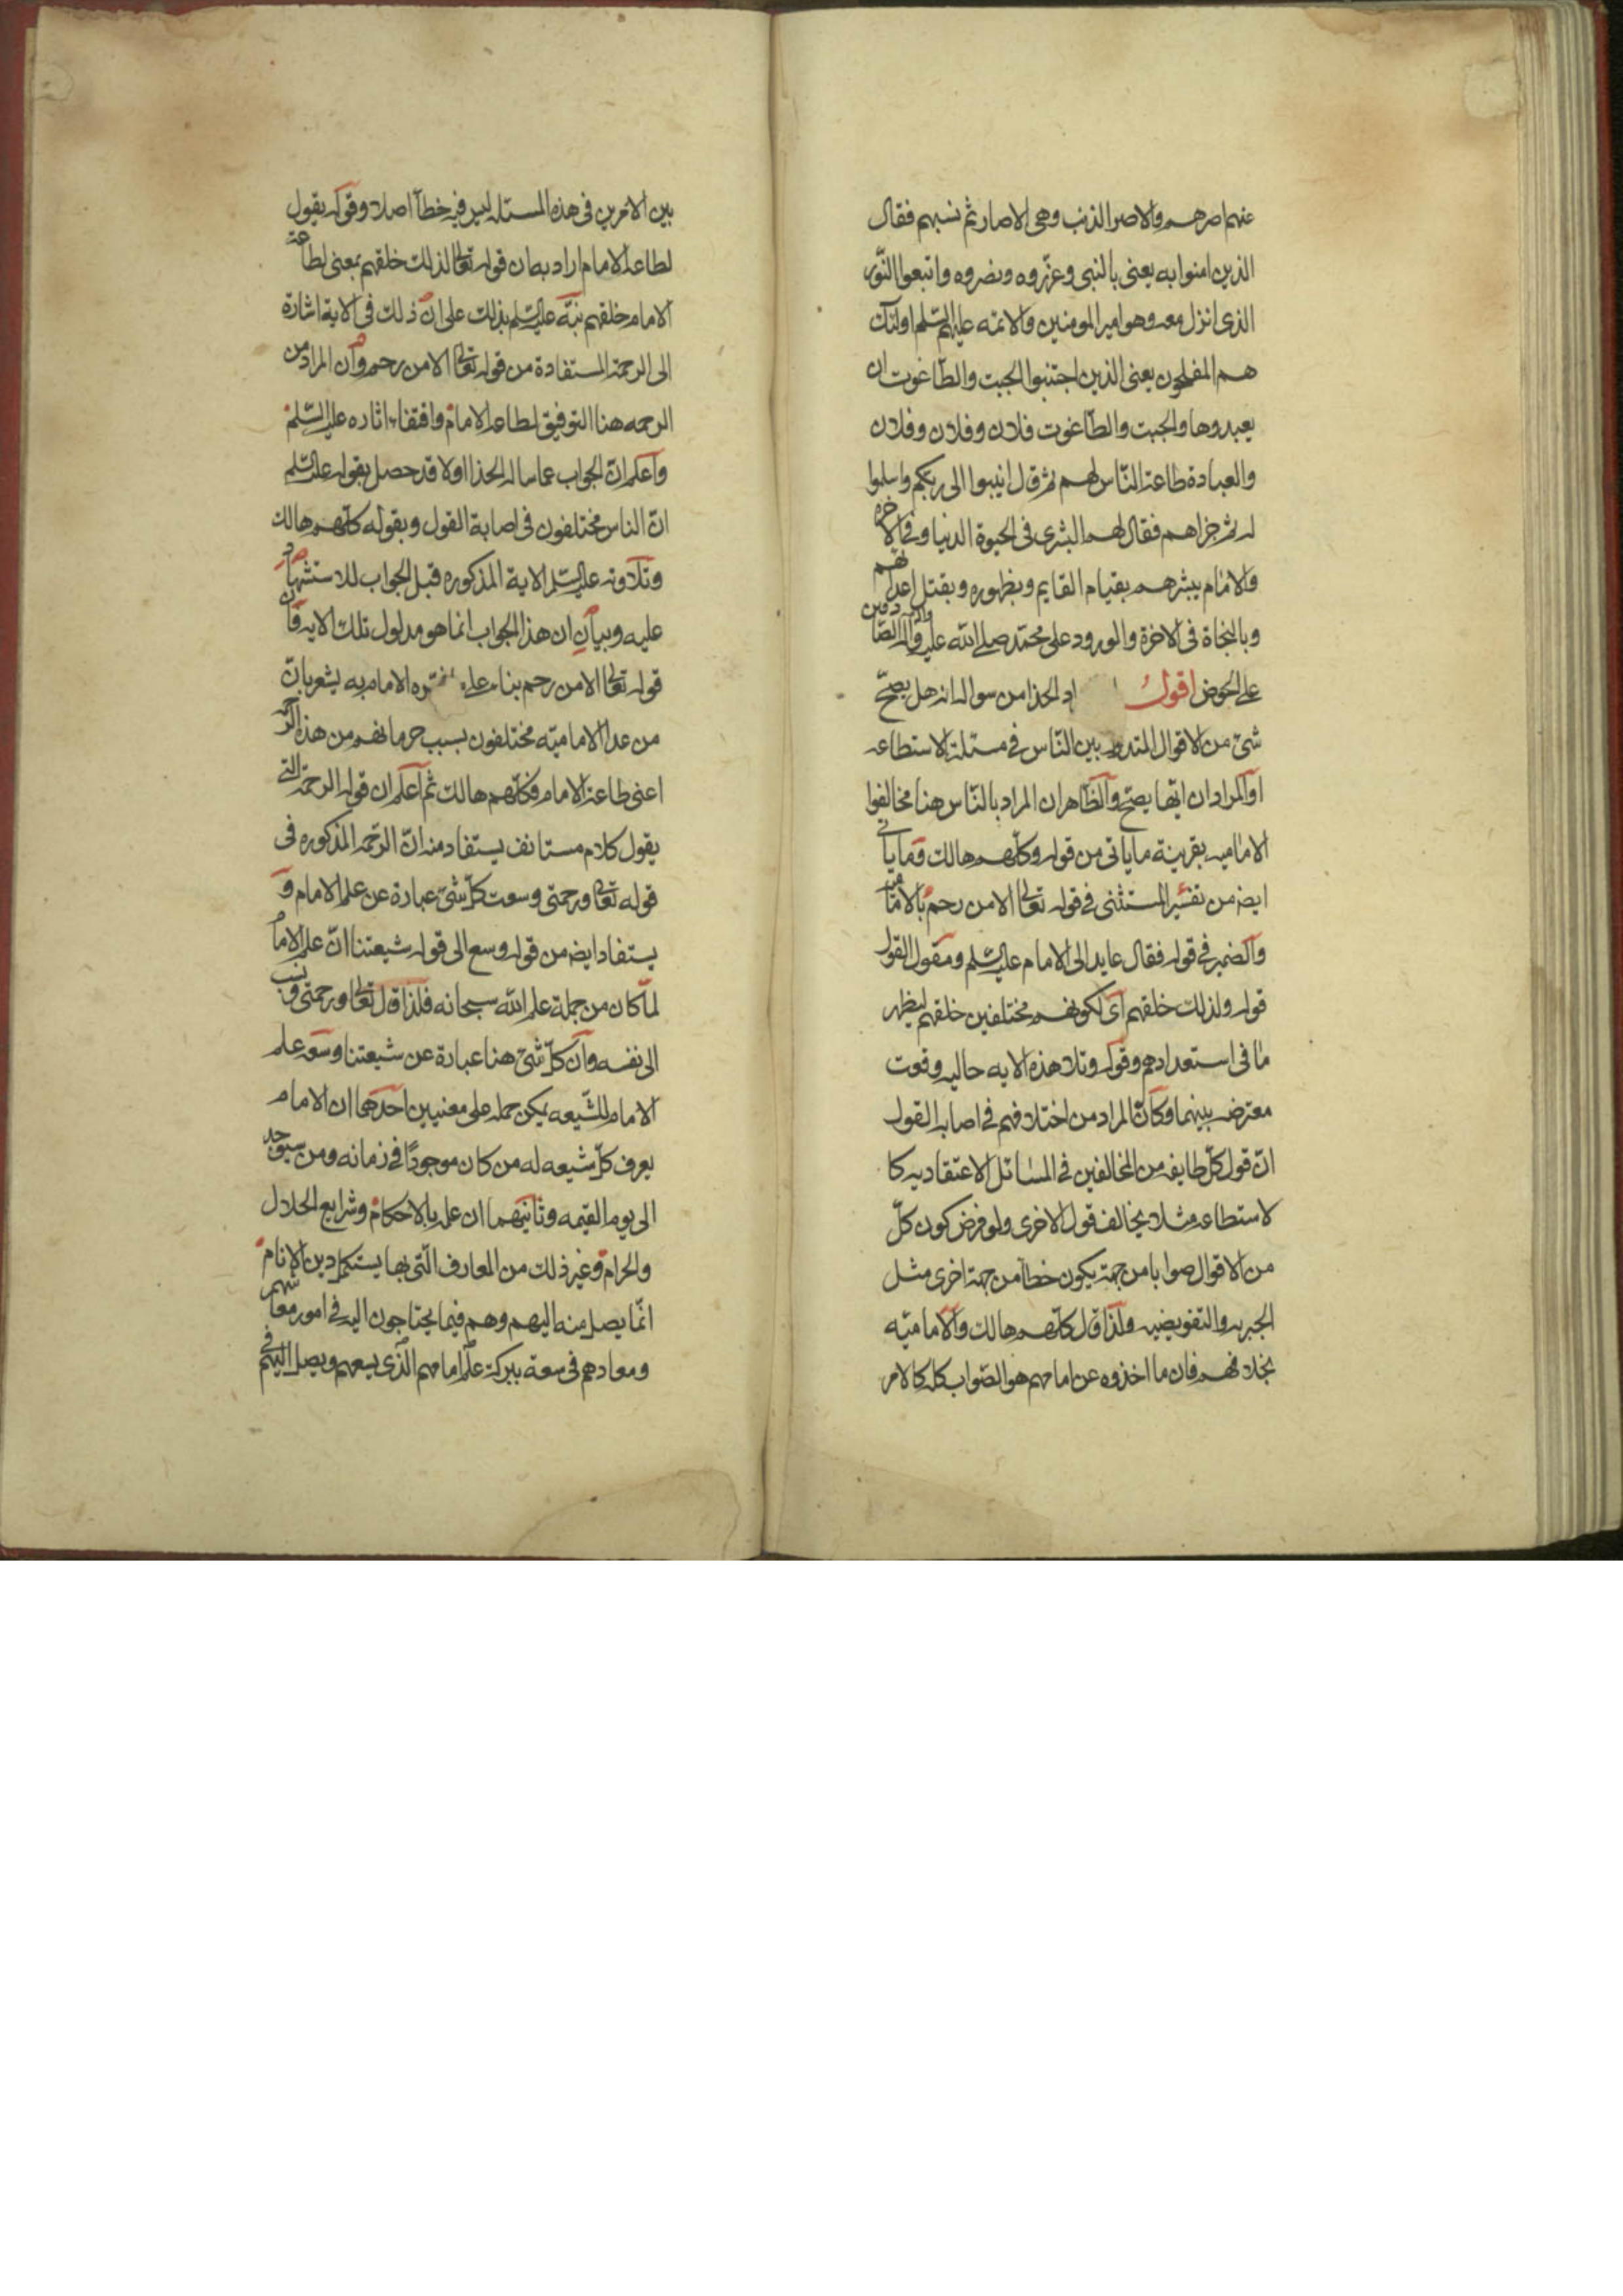 عنهم اصرهم والاصر الذنب وهي الاصار ثم نسبهم فقال
الذين امنوا به يعنى بالنبى وعزروه ونصروه واتبعوا النّور
الذى انزل معه وهو امير المومنين والائمه عليهم السّلم اولئك
هم المفلحون يعنى الذين اجتنبوا الجبت والطّاغوت ان
يعبدوها والجبت والطّاغوت فلان وفلان وفلان
والعبادة طاعة النّاس لهم ثم قال انيبوا الى ربّكم واسلموا
له ثم جزاهم فقال لهم البشرى فى الحيوة الدنيا وفى الاخرة
والامام يبشرهم بقيام القايم وبظهوره وبقتل اعدائهم
وبالنجاة فى الاخرة والورود على محمّد صلى الله عليه واله الصّادقين
على الحوض اقول اد الحذا من سواله انه هل يصحّ
شئ من الاقوال المتدو بين النّاس في مسئلة الاستطاعه
او المراد ان ايّها يصحّ والظّاهر ان المراد بالنّاس هنا مخالفوا
الاماميه بقرينة ما ياتى من قوله وكلّهم هالك وما ياتى
ايضه من تفسير المستثنى في قوله تعالى الا من رحم بالاماميه
والضمير في قوله فقال عايد الى الامام عليه السّلم ومقول القول
قوله ولذلك خلقهم اى لكونهم مختلفين خلقهم ليظهر
ما فى استعدادهم وقوله وتلا هذه الايه حاليه وقعت
معترضه بينهما وكانّ المراد من اختلافهم في اصابة القول
انّ قول كلّ طايفه من المخالفين في المسائل الاعتقاديه كا
لاستطاعه مثلا يخالف قول الاخرى ولو فرض كون كلّ
من الاقوال صوابا من جهة يكون خطأ من جهة اخرى مثل
الجبريه والتفويضيه ولذا قال كلّهم هالك والاماميّه
بخلافهم فان ما اخذوه عن امامهم هو الصّواب كله كالامر
بين الامرين فى هذه المسئله ليس فيه خطأ اصلا وقوله يقول
لطاعة الامام اراد به ان قوله تعالى لذلك خلقهم بمعنى لطاعة
الامام خلقهم نبّه عليه السّلم بذلك على ان ذلك فى الاية اشارة
الى الرحمة المستفادة من قوله تعالى الا من رحم وان المراد من
الرحمه هنا التوفيق لطاعة الامام واقتفاء اثاره عليه السّلم
واعلم انّ الجواب عما ساله الحذا اولا قد حصل بقوله عليه السّلم
انّ الناس مختلفون فى اصابة القول وبقوله كلّهم هالك
وتلاوته عليه السّلم الاية المذكوره قبل الجواب للاستشهاد
عليه وبيان ان هذا الجواب انما هو مدلول تلك الايه فان
قوله تعالى الا من رحم بناء على ره الامام به يشعر بانّ
من عدا الاماميّه مختلفون بسبب حرمانهم من هذه الرّحمه
اعنى طاعة الامام فكلّهم هالك ثم اعلم ان قوله الرحمة التى
يقول كلام مستانف يستفاد منه انّ الرّحمه المذكوره فى
قوله تعالى ورحمتى وسعت كلّ شئ عبارة عن علم الامام و
يستفاد ايضه من قوله وسع الى قوله شيعتنا انّ علم الامام
لمّا كان من جملة علم الله سبحانه فلذا قال تعالى ورحمتى ونسب
الى نفسه وان كلّ شئ هنا عبارة عن شيعتنا وسعه علم
الامام للشّيعه يمكن حمله على معنيين احدهما ان الامام
يعرف كلّ شيعه له من كان موجودًا في زمانه ومن سيوجد
الى يوم القيمه وثانيهما ان علمه بالاحكام وشرايع الحلال
والحرام وغير ذلك من المعارف الّتى بها يستكمل دين الانام
انّما يصل منه اليهم وهم فيما يحتاجون اليه في امور معاشهم
ومعادهم فى سعة ببركة علم امامهم الّذى يسعهم ويصل اليهم فى